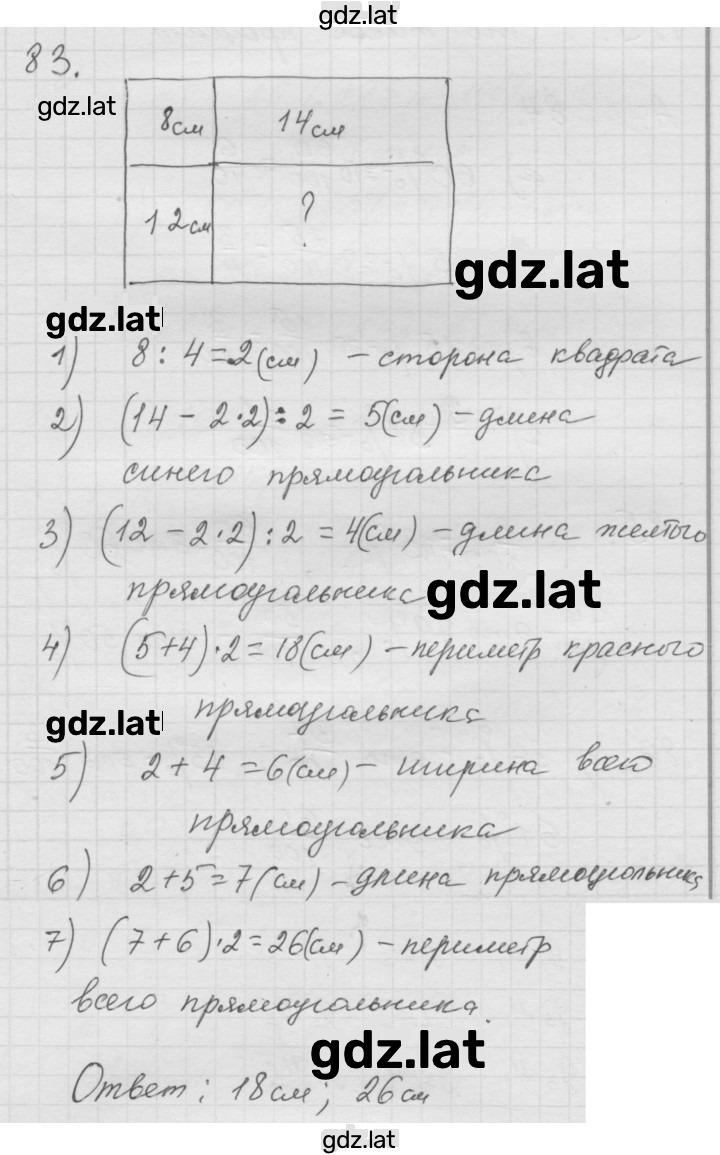 gdz.lat
83.
gdz.lat
8см 14см
12см ?
gdz.lat
gdz.lat
1) 8 : 4 = 2 (см) – сторона квадрата
2) (14 – 2·2) : 2 = 5(см) – длина
синего прямоугольника
3) (12 – 2·2) : 2 = 4(см) – длина желтого
прямоугольника
gdz.lat
4) (5+4)·2 = 18(см) – периметр красного
прямоугольника
gdz.lat
5) 2 + 4 = 6(см) – ширина всего
прямоугольника
6) 2+5 = 7(см) – длина прямоугольника
7) (7+6)·2 = 26(см) – периметр
всего прямоугольника.
gdz.lat
Ответ: 18см; 26см
gdz.lat